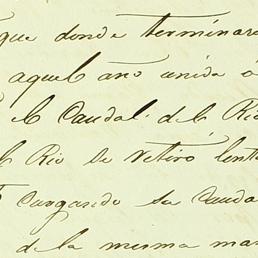 que donde terminare
aquel año unida á
el Caudal. de el Rio
el Rio se retiró lent
cargando su Cauda
de la misma ma